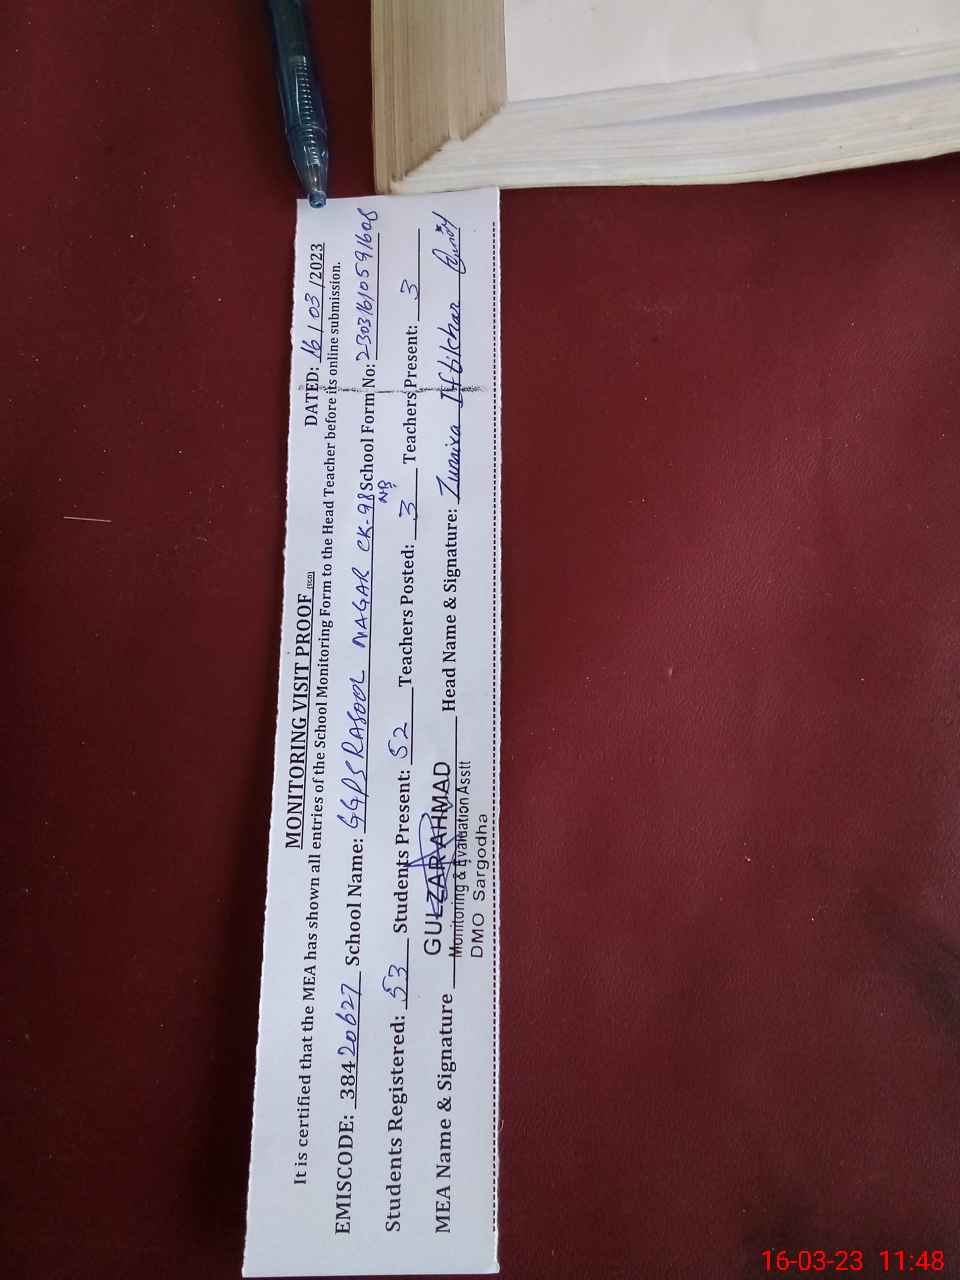 MONITORING VISIT PROOF (SED)
DATED: 16/03/2023
It is certified that the MEA has shown all entries of the School Monitoring Form to the Head Teacher before its online submission.
EMISCODE: 38420627 School Name: GGPS RASOOL NAGAR CK-98 NB School Form No: 23031610591608
Students Registered: 53 Students Present: 52 Teachers Posted: 3 Teachers Present: 3
MEA Name & Signature GULZAR AHMAD Head Name & Signature: Zunaira Iftikhar
Monitoring & Evaluation Asstt
DMO Sargodha
16-03-23 11:48